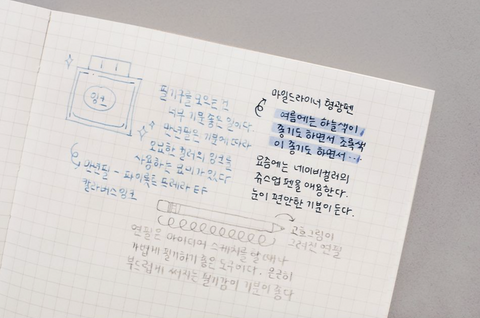 잉크
필기구를 모으는 건
너무 기분 좋은 일이다.
만년필은 기분에 따라
오묘한 컬러의 잉크를
사용하는 묘미가 있다
만년필 - 파이롯트 EF
컬러버스잉크
마일드라이너 형광펜
여름에는 하늘색이
좋기도 하면서 초록색
이 좋기도 하면서…
요즘에는 네이비컬러의
쥬스업 펜을 애용한다.
눈이 편안한 기분이 든다.
고흐그림이
그려진 연필
연필은 아이디어 스케치를 할 때나
가볍게 필기하기 좋은 도구이다. 은근히
부드럽게 써지는 필기감이 기분이 좋다